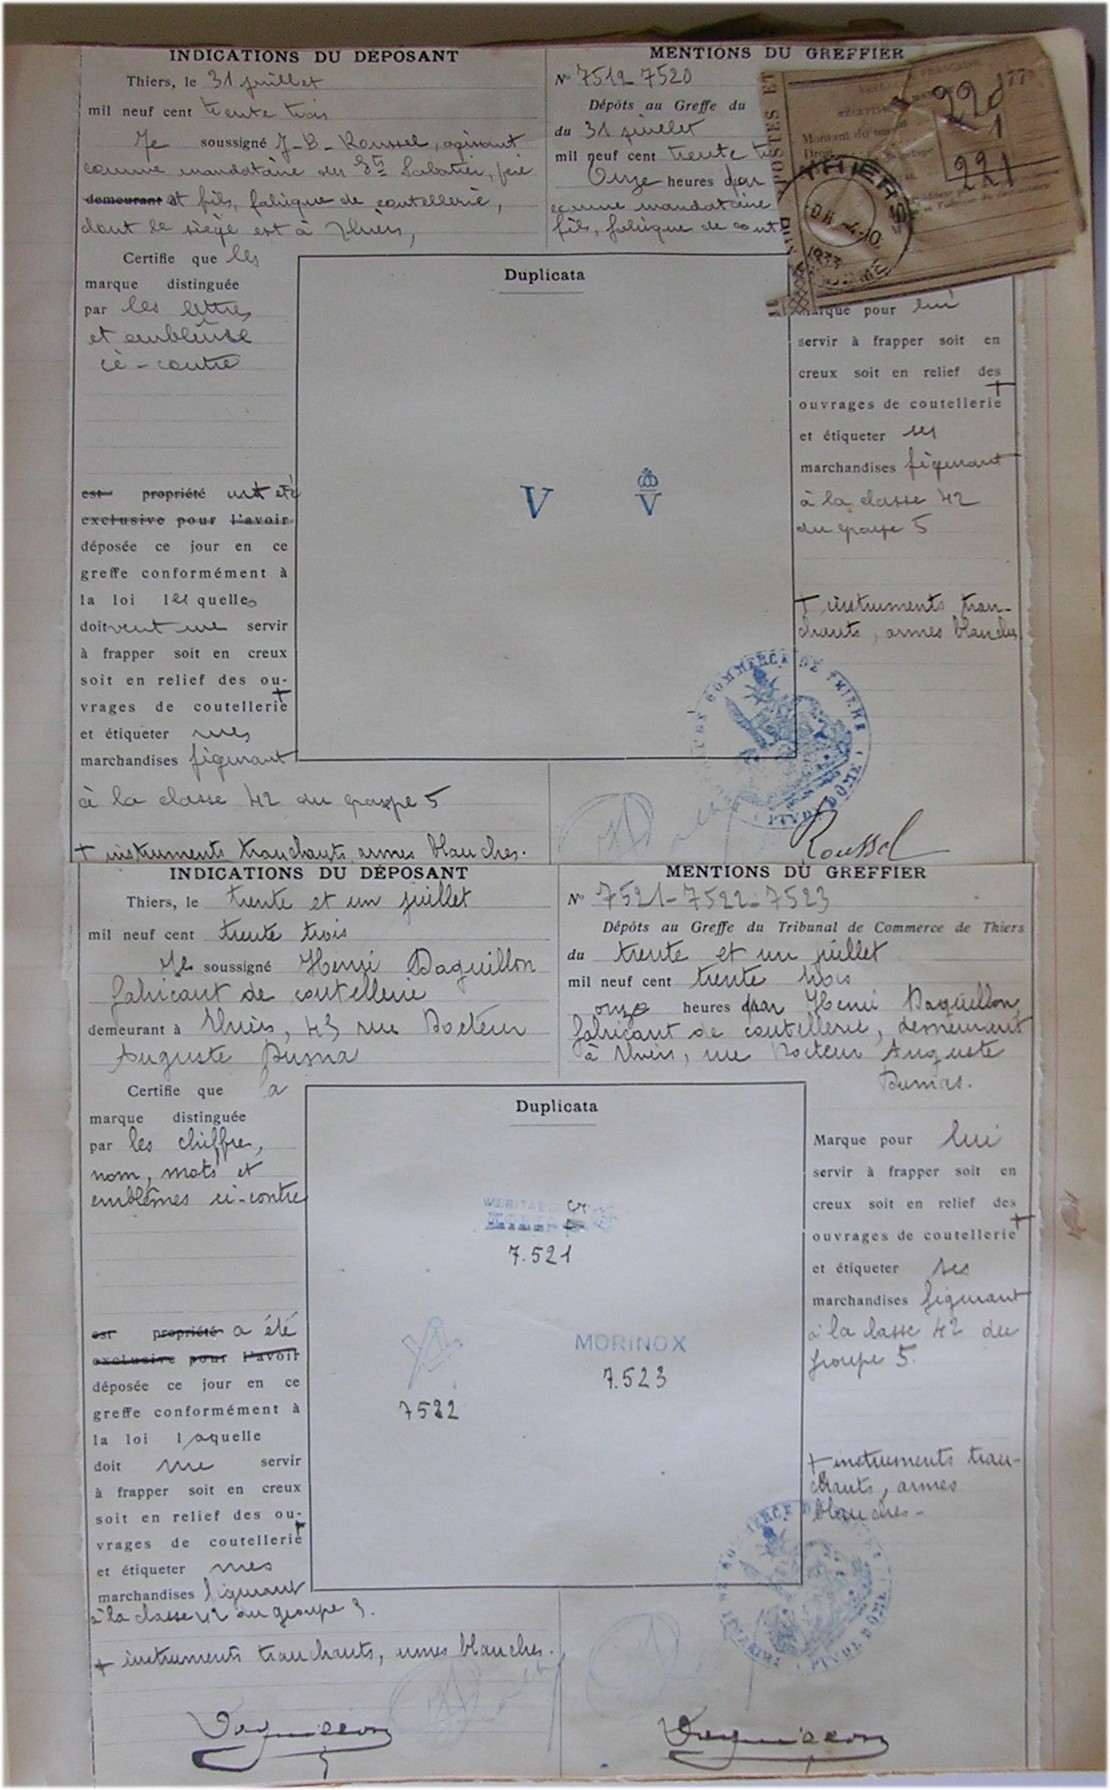 INDICATIONS DU DÉPOSANT
Thiers, le 31 juillet
mil neuf cent trente trois
Je soussigné J-B-Roussel, agissant
comme mandataire des Ets Sabatier, père
demeurant et fils, fabrique de coutellerie,
dont le siège est à Thiers,
Certifie que les
marque distinguée
par les lettres
et emblème
ci-contre
est propriété ont été
exclusive pour l'avoir
déposée ce jour en ce
greffe conformément à
la loi les quelles
doivent me servir
à frapper soit en creux
soit en relief des ou-
vrages de coutellerie +
et étiqueter mes
marchandises figurant
à la classe 42 du groupe 5
+ instruments tranchants, armes blanches.
MENTIONS DU GREFFIER
No 7519-7520
Dépôts au Greffe du
du 31 juillet
mil neuf cent trente
Onze heures par
comme mandataire
fils, fabrique de cout
Duplicata
V V
Marque pour lui
servir à frapper soit en
creux soit en relief des
ouvrages de coutellerie +
et étiqueter ses
marchandises figurant
à la classe 42
du groupe 5
+ instruments tran-
chants, armes blanches
Roussel
221
THIERS
1933
COMMERCE DE THIERS
PUY DE DOME
INDICATIONS DU DÉPOSANT
Thiers, le trente et un juillet
mil neuf cent trente trois
Je soussigné Henri Daguillon
fabricant de coutellerie
demeurant à Thiers, 43 rue Docteur
Auguste Dumas
Certifie que la
marque distinguée
par les chiffre,
nom, mots et
emblêmes ci-contre
est propriété a été
exclusive pour l'avoir
déposée ce jour en ce
greffe conformément à
la loi laquelle
doit me servir
à frapper soit en creux
soit en relief des ou-
vrages de coutellerie +
et étiqueter mes
marchandises figurant
à la classe 42 du groupe 5.
+ instruments tranchants, armes blanches.
Daguillon
MENTIONS DU GREFFIER
No 7521-7522-7523
Dépôts au Greffe du Tribunal de Commerce de Thiers
du trente et un juillet
mil neuf cent trente trois
onze heures par Henri Daguillon,
fabricant de coutellerie, demeurant
à Thiers, rue Docteur Auguste
Dumas.
Duplicata
7.521
7522
MORINOX
7.523
Marque pour lui
servir à frapper soit en
creux soit en relief des
ouvrages de coutellerie +
et étiqueter ses
marchandises figurant
à la classe 42 du
groupe 5.
+ instruments tran-
chants, armes
blanches-
Daguillon